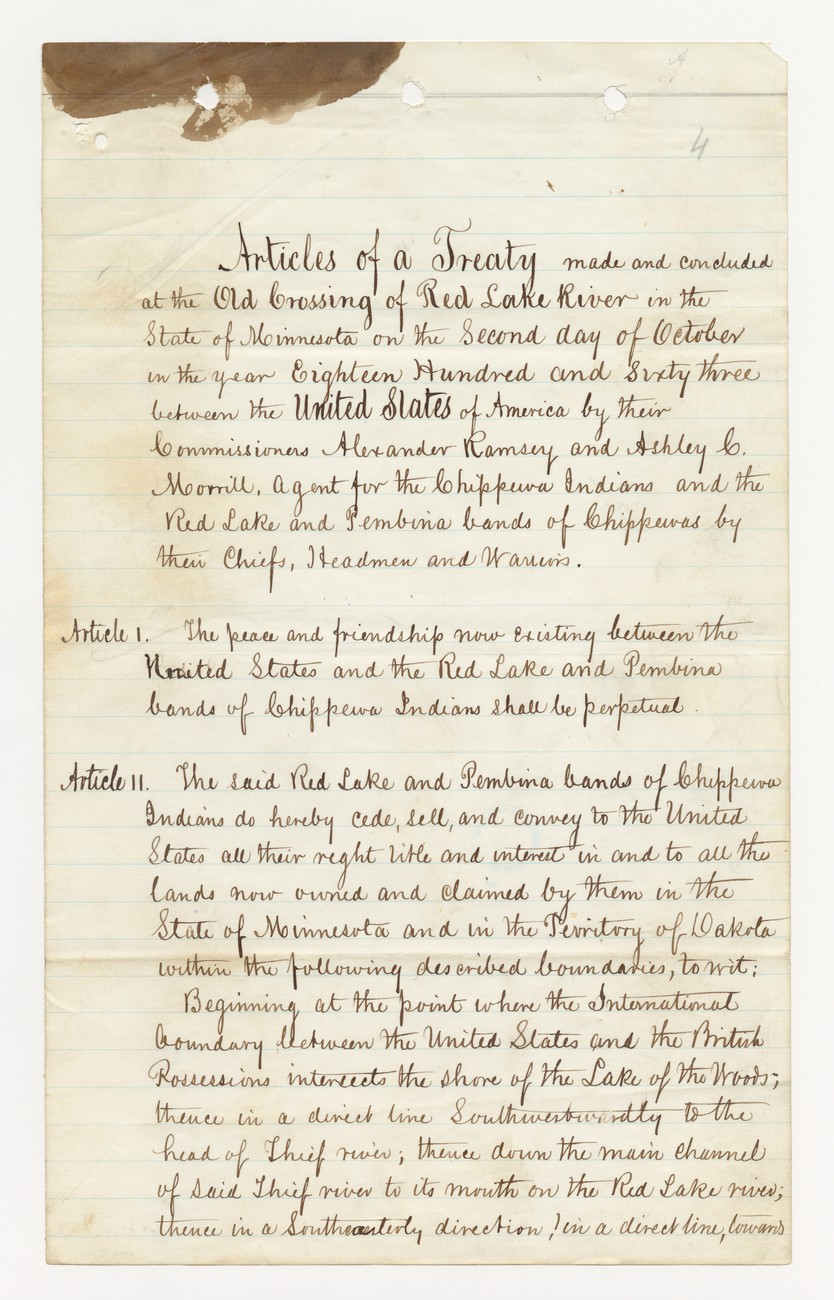 4
Articles of a Treaty made and concluded
at the Old Crossing of Red Lake River in the
State of Minnesota on the Second day of October
in the year Eighteen Hundred and Sixty three
between the United States of America by their
Commissioners Alexander Ramsey and Ashley C.
Morrill, Agent for the Chippewa Indians and the
Red Lake and Pembina bands of Chippewas by
their Chiefs, Headmen and Warriors.
Article I. The peace and friendship now existing between the
United States and the Red Lake and Pembina
bands of Chippewa Indians shall be perpetual.
Article II. The said Red Lake and Pembina bands of Chippewa
Indians do hereby cede, sell, and convey to the United
States all their right title and interest in and to all the
lands now owned and claimed by them in the
State of Minnesota and in the Territory of Dakota
within the following described boundaries, to wit;
Beginning at the point where the International
boundary between the United States and the British
Possessions intersects the shore of the Lake of the Woods;
thence in a direct line Southwestwardly to the
head of Thief river; thence down the main channel
of said Thief river to its mouth on the Red Lake river;
thence in a Southeasterly direction, in a direct line, towards